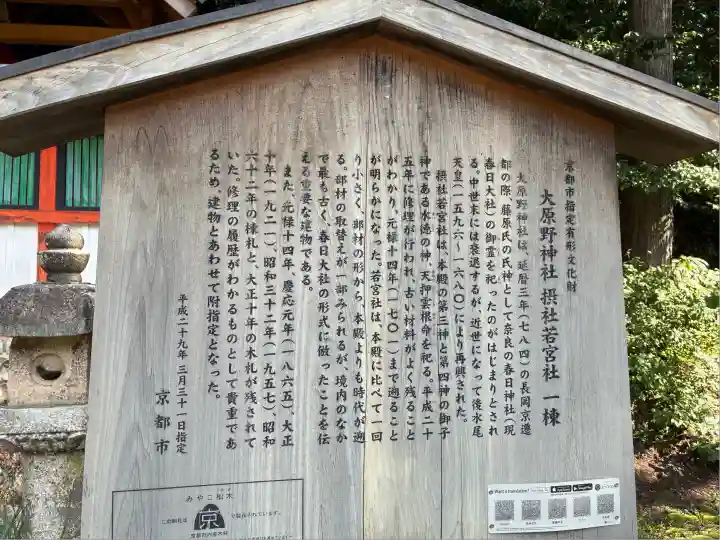 京都市指定有形文化財
大原野神社 摂社若宮社 一棟
大原野神社は、延暦三年(七八四)の長岡京遷
都の際、藤原氏の氏神として奈良の春日神社(現
春日大社)の御霊を祀ったのがはじまりとされ
る。中世末には衰退するが、近世になって後水尾
天皇(一五九六～一六八〇)により再興された。
摂社若宮社は、本殿の第三神と第四神の御子
神である水徳の神、天押雲根命を祀る。平成二十
五年に修理が行われ、古い材料がよく残ること
がわかり、元禄十四年(一七〇一)まで遡ること
が明らかになった。若宮社は、本殿に比べて一回
り小さく、部材の形から、本殿よりも時代が遡
る。部材の取替えが一部みられるが、境内のなか
で最も古く、春日大社の形式に倣ったことを伝
える重要な建物である。
また、元禄十四年、慶応元年(一八六五)、大正
十年(一九二一)、昭和三十二年(一九五七)、昭和
六十二年の棟札と、大正十年の木札が残されて
いた。修理の履歴がわかるものとして貴重であ
るため、建物とあわせて附指定となった。
平成二十九年三月三十一日指定
京都市
みやこ杣木
この駒札は
京
で製作されています。
京都市内産木材